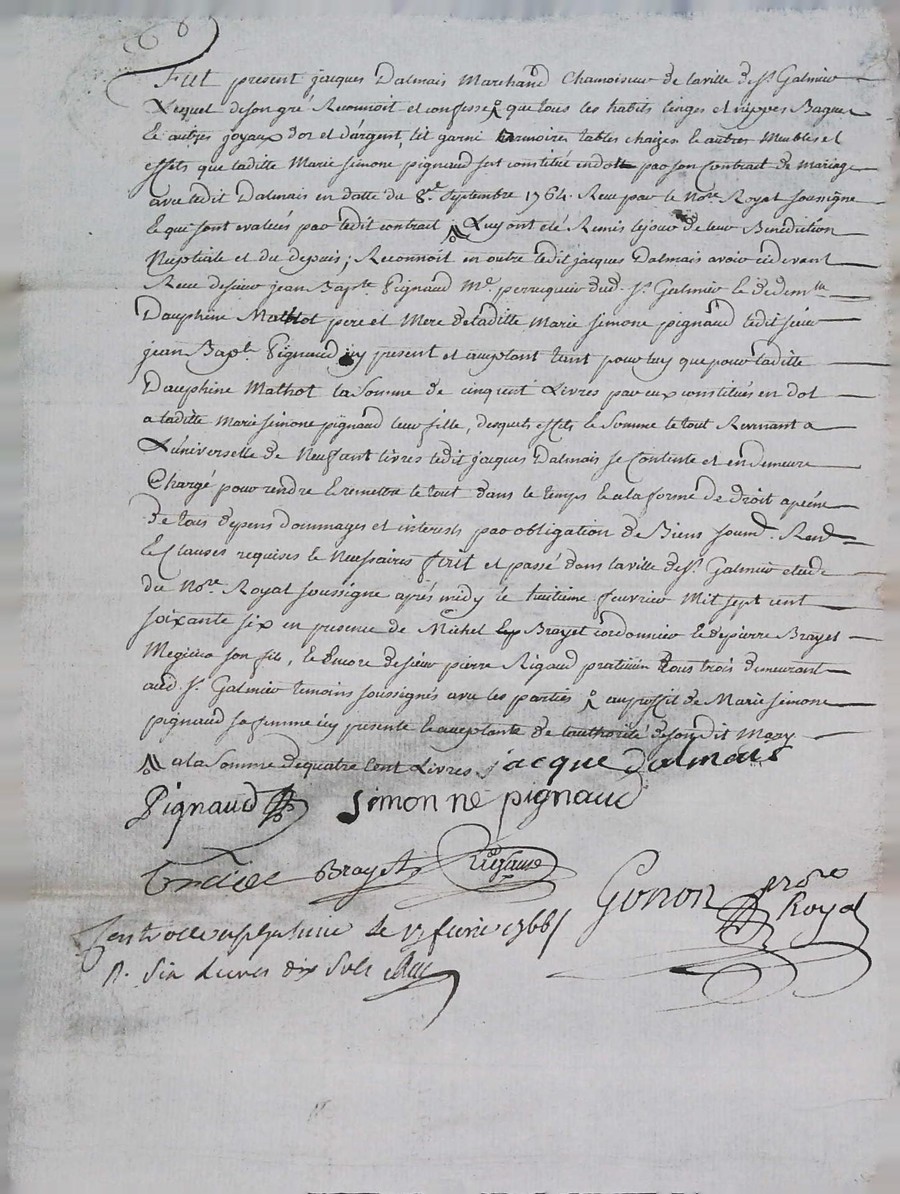 Fut present jacques Dalmais Marchand Chamoiseur de la ville de st. Galmier
Lequel de son gré Reconnoit et confesse que tous les habits linges et nippes Bagues
& autres joyaux d'or et d'argent, lit garni armoire, tables chaizes & autres Meubles et
effets que laditte Marie simone pignaud s'est constitué en dot par son Contrat de mariage
avec ledit Dalmais en datte du 8e. septembre 1764. Receu par le Nore Royal soussigné
& que sont evalués par ledit contrat Luy ont eté Remis le jour de leur Benediction
Nuptiale et du depuis; Reconnoit en outre ledit jacques Dalmais avoir cidevant
Receu de sieur jean Bapte Pignaud Me perruquier dud. st. Galmier & de dem.lle
Dauphine Mathot pere et Mere de laditte Marie simone pignaud ledit sieur
jean Bapt. Pignaud icy present et acceptant tant pour luy que pour laditte
Dauphine Mathot la somme de cinq cent Livres par eux constitués en dot
a laditte Marie simone pignaud leur fille, desquels effets & somme le tout Revenant a
L'universelle de Neuf cent livres ledit jacques Dalmais se Contente et en demeure
Chargé pour rendre & remettre le tout dans le temps & a la forme de droit a peine
de tous depens dommages et interests par obligation de Biens soumd. Rend.
& Clauses requises & Necessaires fait et passé dans la ville de st. Galmier etude
du Nore. Royal soussigne après midy le huitieme fevrier Mil sept cent
soixante six en presence de Michel Brayet cordonnier & de pierre Brayet
Megicier son fils, & Encore de sieur pierre Rigaud praticien tous trois demeurant
aud. st. Galmier temoins soussignés avec les parties au proffit de Marie simone
pignaud sa femme icy presente & acceptante de l'authorité de son dit Mary
a la somme de quatre Cent Livres jacque dalmais
Pignaud simonne pignaud
Brayet Rigaud
Gonon nore
Royal
le 17 fevrier 1766
R. Six Livres dix sols